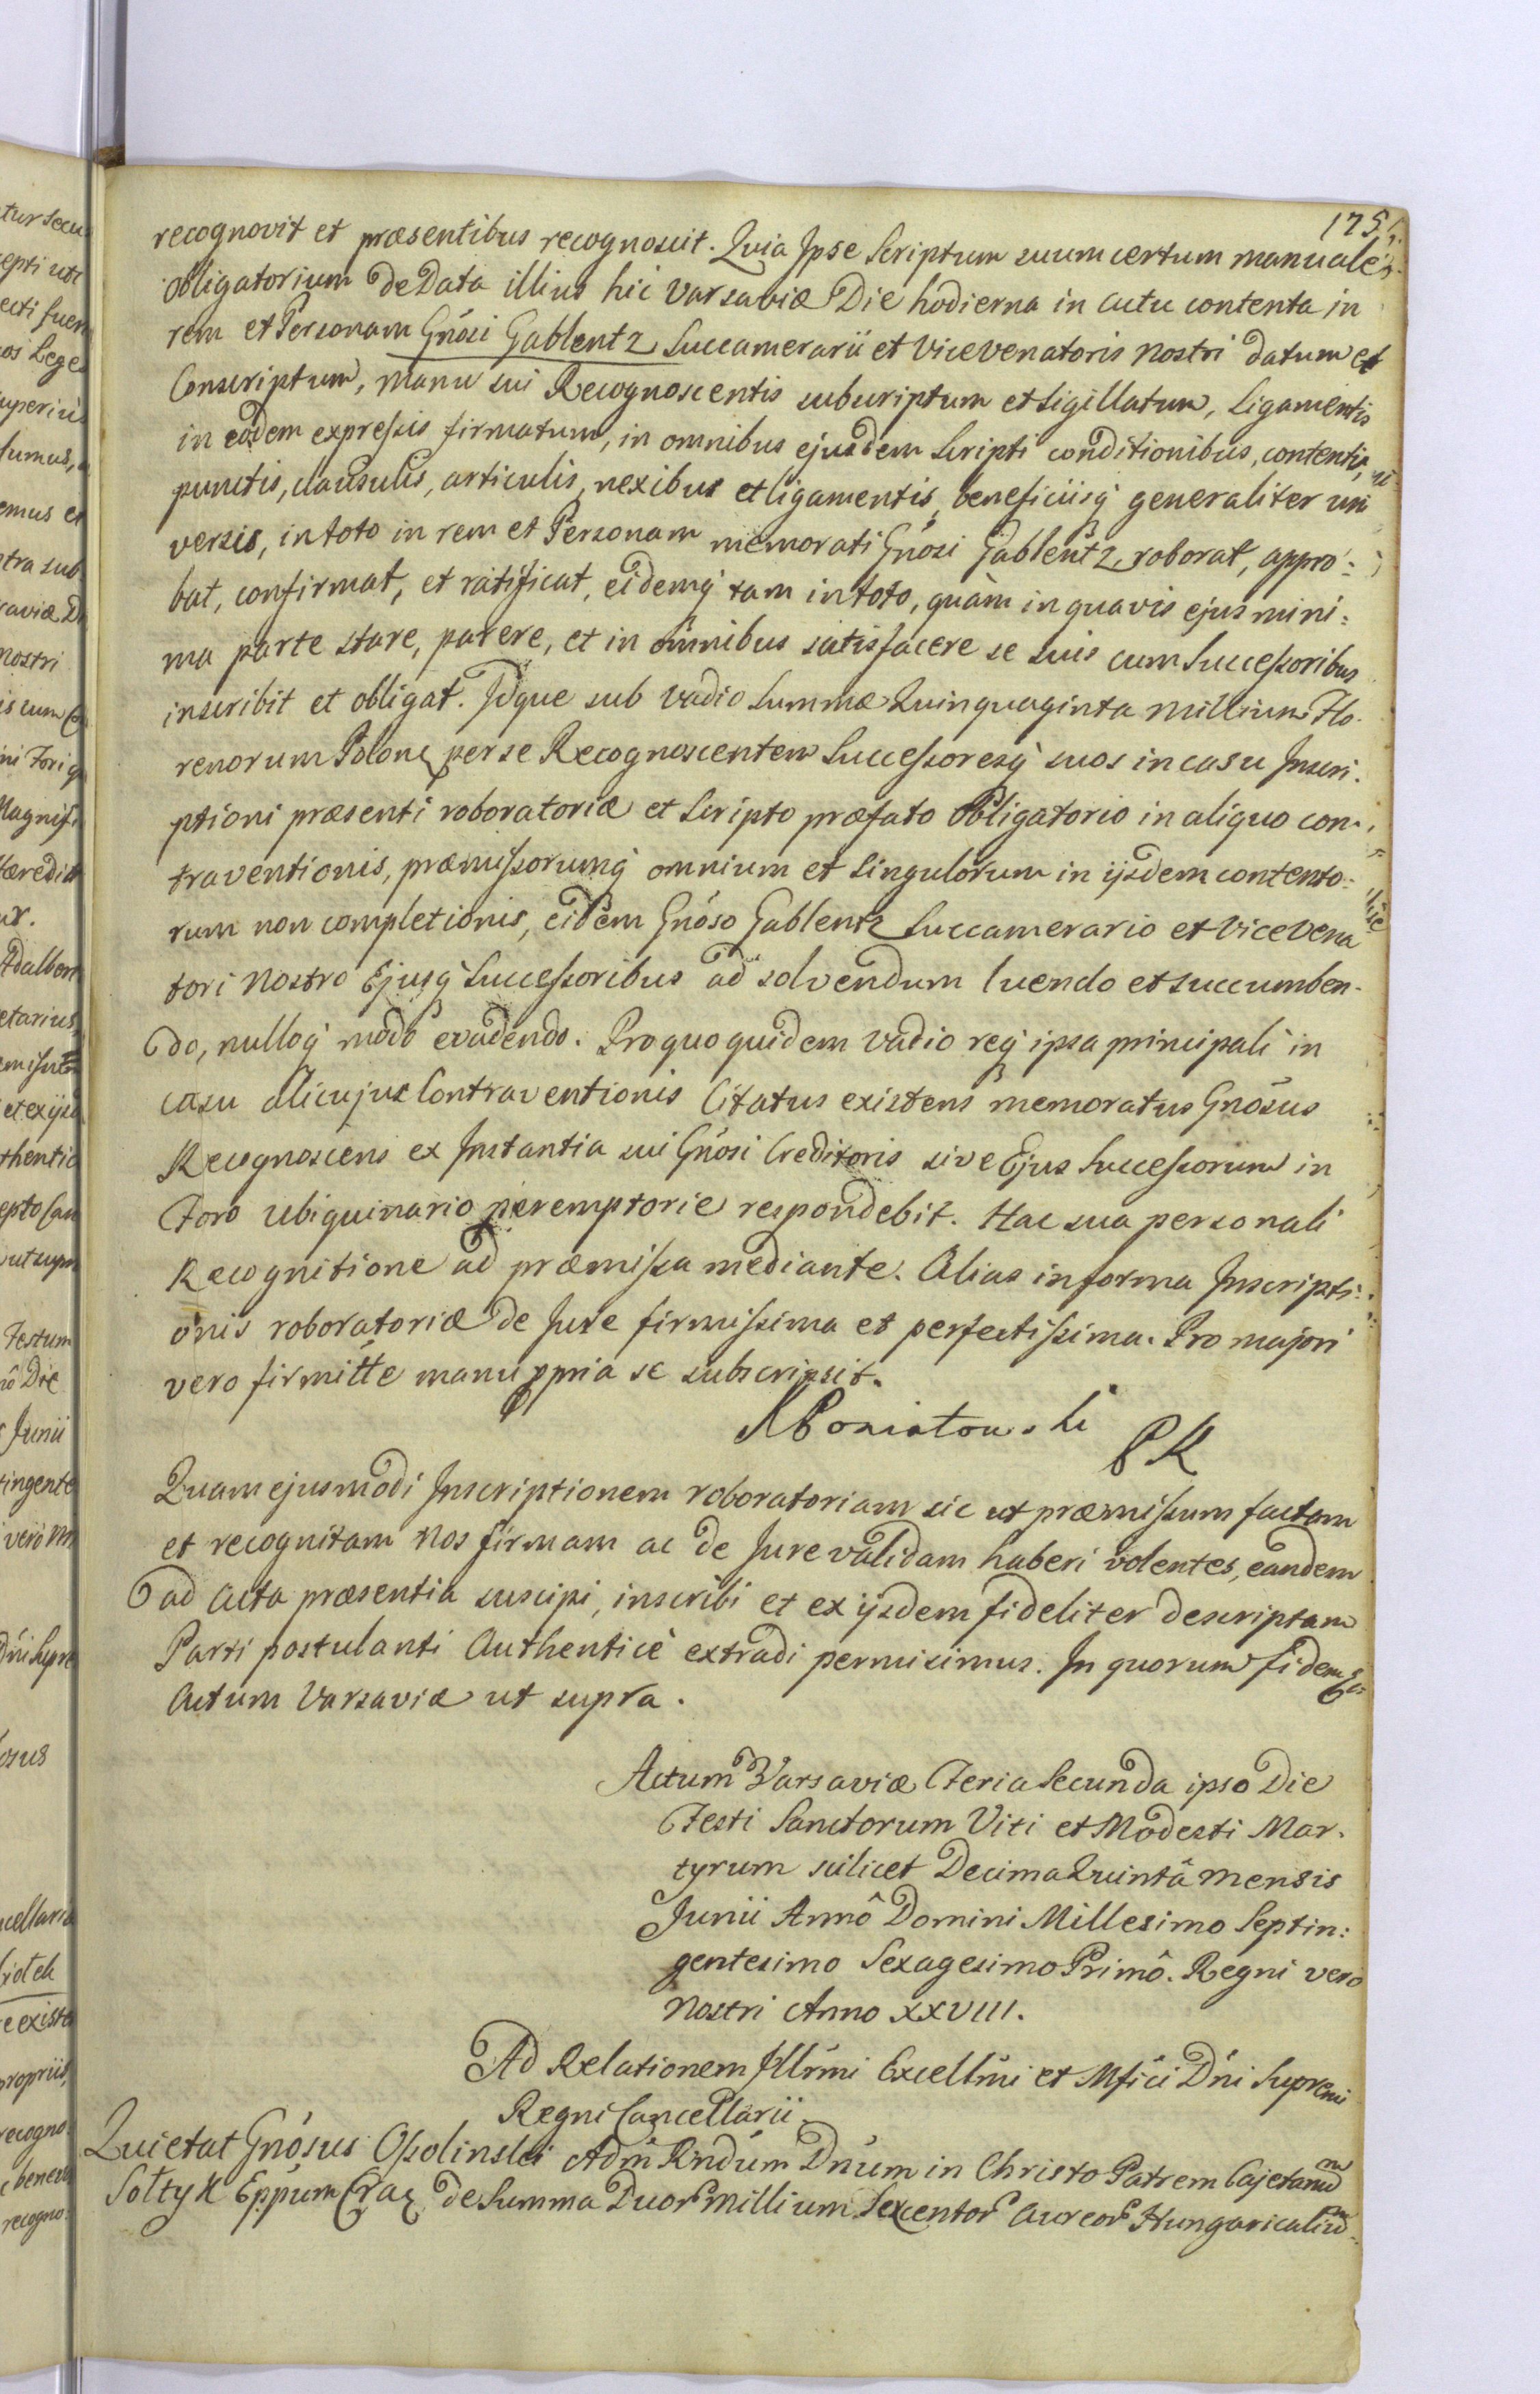 175
recognovit et præsentibus recognoscit. Quia Ipse Scriptum suum certum manuale
obligatorium de Data illius hic Varsaviæ Die hodierna in actu contenta in
rem et Personam Gnósi Gablentz Succamerarii et Vicevenatoris Nostri datum et
Conscriptum, manu sui Recognoscentis subscriptum et Sigillatum, Ligamentis
in eodem expressis firmatum, in omnibus ejusdem Scripti conditionibus, contentis,
punctis, clausulis, articulis, nexibus et ligamentis, beneficiisq́ generaliter uni
versis, in toto in rem et Personam memorati Gnósi Gablentz, roborat, appro:
bat, confirmat, et ratificat, eidemq́ tam in toto, quàm in quavis ejus mini:
ma parte stare, parere, et in omnibus satisfacere se suis cum Successoribus
inscribit et obligat. Idque sub vadio Summæ Quinquaginta Millium Flo-
renorum Polonꝝ per se Recognoscentem Successoresq́ suos in casu Inscri-
ptioni præsenti roboratoriæ et Scripto præfato obligatorio in aliquo con-
traventionis, præmissorumq́ omnium et Singulorum in ijsdem contento:
rum non completionis, eidem Gnóso Gablentz Succamerario et Vicevena
tori Nostro Ejusq́ Successoribus ad solvendum luendo et succumben-
do, nulloq́ modo evadendo. Pro quo quidem vadio req́ ipsa principali in
casu alicujus Contraventionis Citatus existens memoratus Gnósus
Recognoscens ex Instantia sui Gnósi Creditoris sive Ejus Successorum in
Foro ubiquinario peremptorie respondebit. Hac sua personali
Recognitione ad præmissa mediante. Alias in forma Inscripti:
onis roboratoriæ de Jure firmissima et perfectissima. Pro majori
vero firmitte manu ppria se subscripsit.
Poniatowski PK
Quam ejusmodi Inscriptionem roboratoriam sic ut præmissum factam
et recognitam Nos firmam ac de Jure validam haberi volentes, eandem
ad Acta præsentia suscipi, inscribi et ex ijsdem fideliter descriptam
Parti postulanti Authenticè extradi permisimus. In quorum fidem
Actum Varsaviæ ut supra.
Actum Varsaviæ Feria Secunda ipso Die
Festi Sanctorum Viti et Modesti Mar-
tyrum scilicet Decima Quintâ Mensis
Junii Annô Domini Millesimo Septin:
gentesimo Sexagesimo Primô. Regni vero
Nostri Anno XXVIII.
Ad Relationem Illrmi Excellmi et Mfici Dńi Supremi
Regni Cancellarii.
Quietat Gnósus Ossolinski Adm Rndum Dnum in Christo Patrem Cajetanum
Sołtyk Eppum Cracꝝ de Summa Duor Millium Sexcentor Aureor Hungaricalium